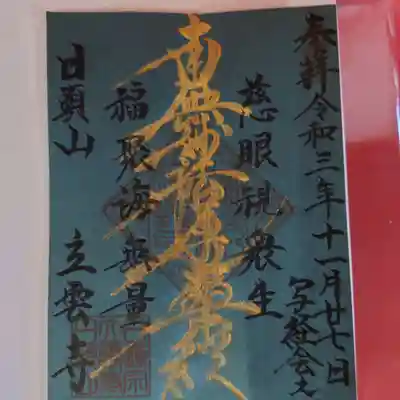 奉拝 令和三年十一月廿七日
写経会之
慈眼視衆生
南無妙法蓮華経
福聚海無量
日真山 立雲寺